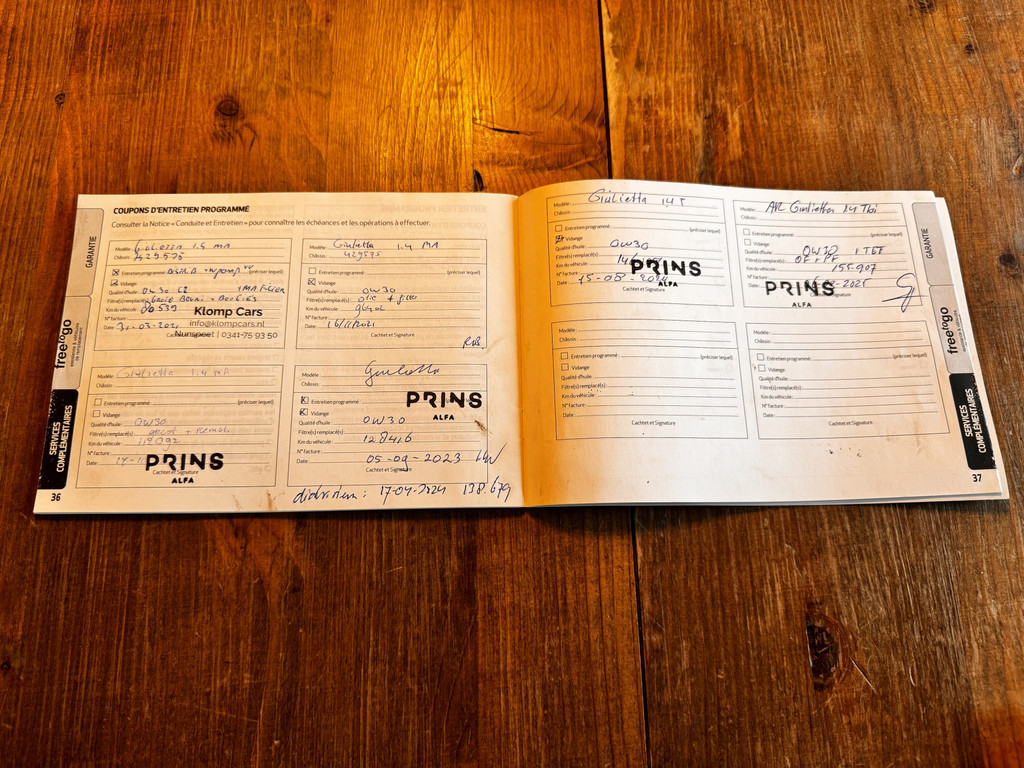 COUPONS D'ENTRETIEN PROGRAMMÉ
Consulter la Notice « Conduite et Entretien » pour connaître les échéances et les opérations à effectuer.
GARANTIE
freetogo
SERVICES
COMPLÉMENTAIRES
36
Modèle: 1.4 MA
Châssis: 7429575
Entretien programmé (préciser lequel)
Vidange
Qualité d'huile: 0W30
Filtre(s) remplacé(s):
Km du véhicule: 80539
N° facture:
Date: 31-03-2021
Cachet et Signature
Klomp Cars
info@klompcars.nl
Nunspeet | 0341-75 93 50
Modèle: Giulietta 1.4 MA
Châssis: 429575
Entretien programmé: (préciser lequel)
Vidange
Qualité d'huile: 0W30
Filtre(s) remplacé(s): olie + filter
Km du véhicule:
N° facture:
Date: 16/11/2021
Cachtet et Signature
Modèle: Giulietta 1.4 MA
Châssis:
Entretien programmé: (préciser lequel)
Vidange
Qualité d'huile: 0W30
Filtre(s) remplacé(s):
Km du véhicule: 119092
N° facture:
Date:
Cachtet et Signature
PRINS
ALFA
Modèle: Giulietta
Châssis:
Entretien programmé
Vidange
Qualité d'huile: 0W30
Filtre(s) remplacé(s):
Km du véhicule: 128416
N° facture:
Date: 05-09-2023
Cachtet et Signature
PRINS
ALFA
distr.riem: 17-04-2024 138.679
Modèle: Giulietta 1.4 T
Châssis:
Entretien programmé: (préciser lequel)
Vidange
Qualité d'huile: 0W30
Filtre(s) remplacé(s):
Km du véhicule:
N° facture:
Date: 15-08-2024
Cachtet et Signature
PRINS
ALFA
Modèle: AR Giulietta 1.4 Tbi
Châssis:
Entretien programmé: (préciser lequel)
Vidange
Qualité d'huile: 0W30
Filtre(s) remplacé(s):
Km du véhicule: 155.907
N° facture:
Date: 2025
Cachtet et Signature
PRINS
ALFA
Modèle:
Châssis:
Entretien programmé: (préciser lequel)
Vidange
Qualité d'huile:
Filtre(s) remplacé(s):
Km du véhicule:
N° facture:
Date:
Cachtet et Signature
Modèle:
Châssis:
Entretien programmé: (préciser lequel)
Vidange
Qualité d'huile:
Filtre(s) remplacé(s):
Km du véhicule:
N° facture:
Date:
Cachtet et Signature
GARANTIE
freetogo
SERVICES
COMPLÉMENTAIRES
37